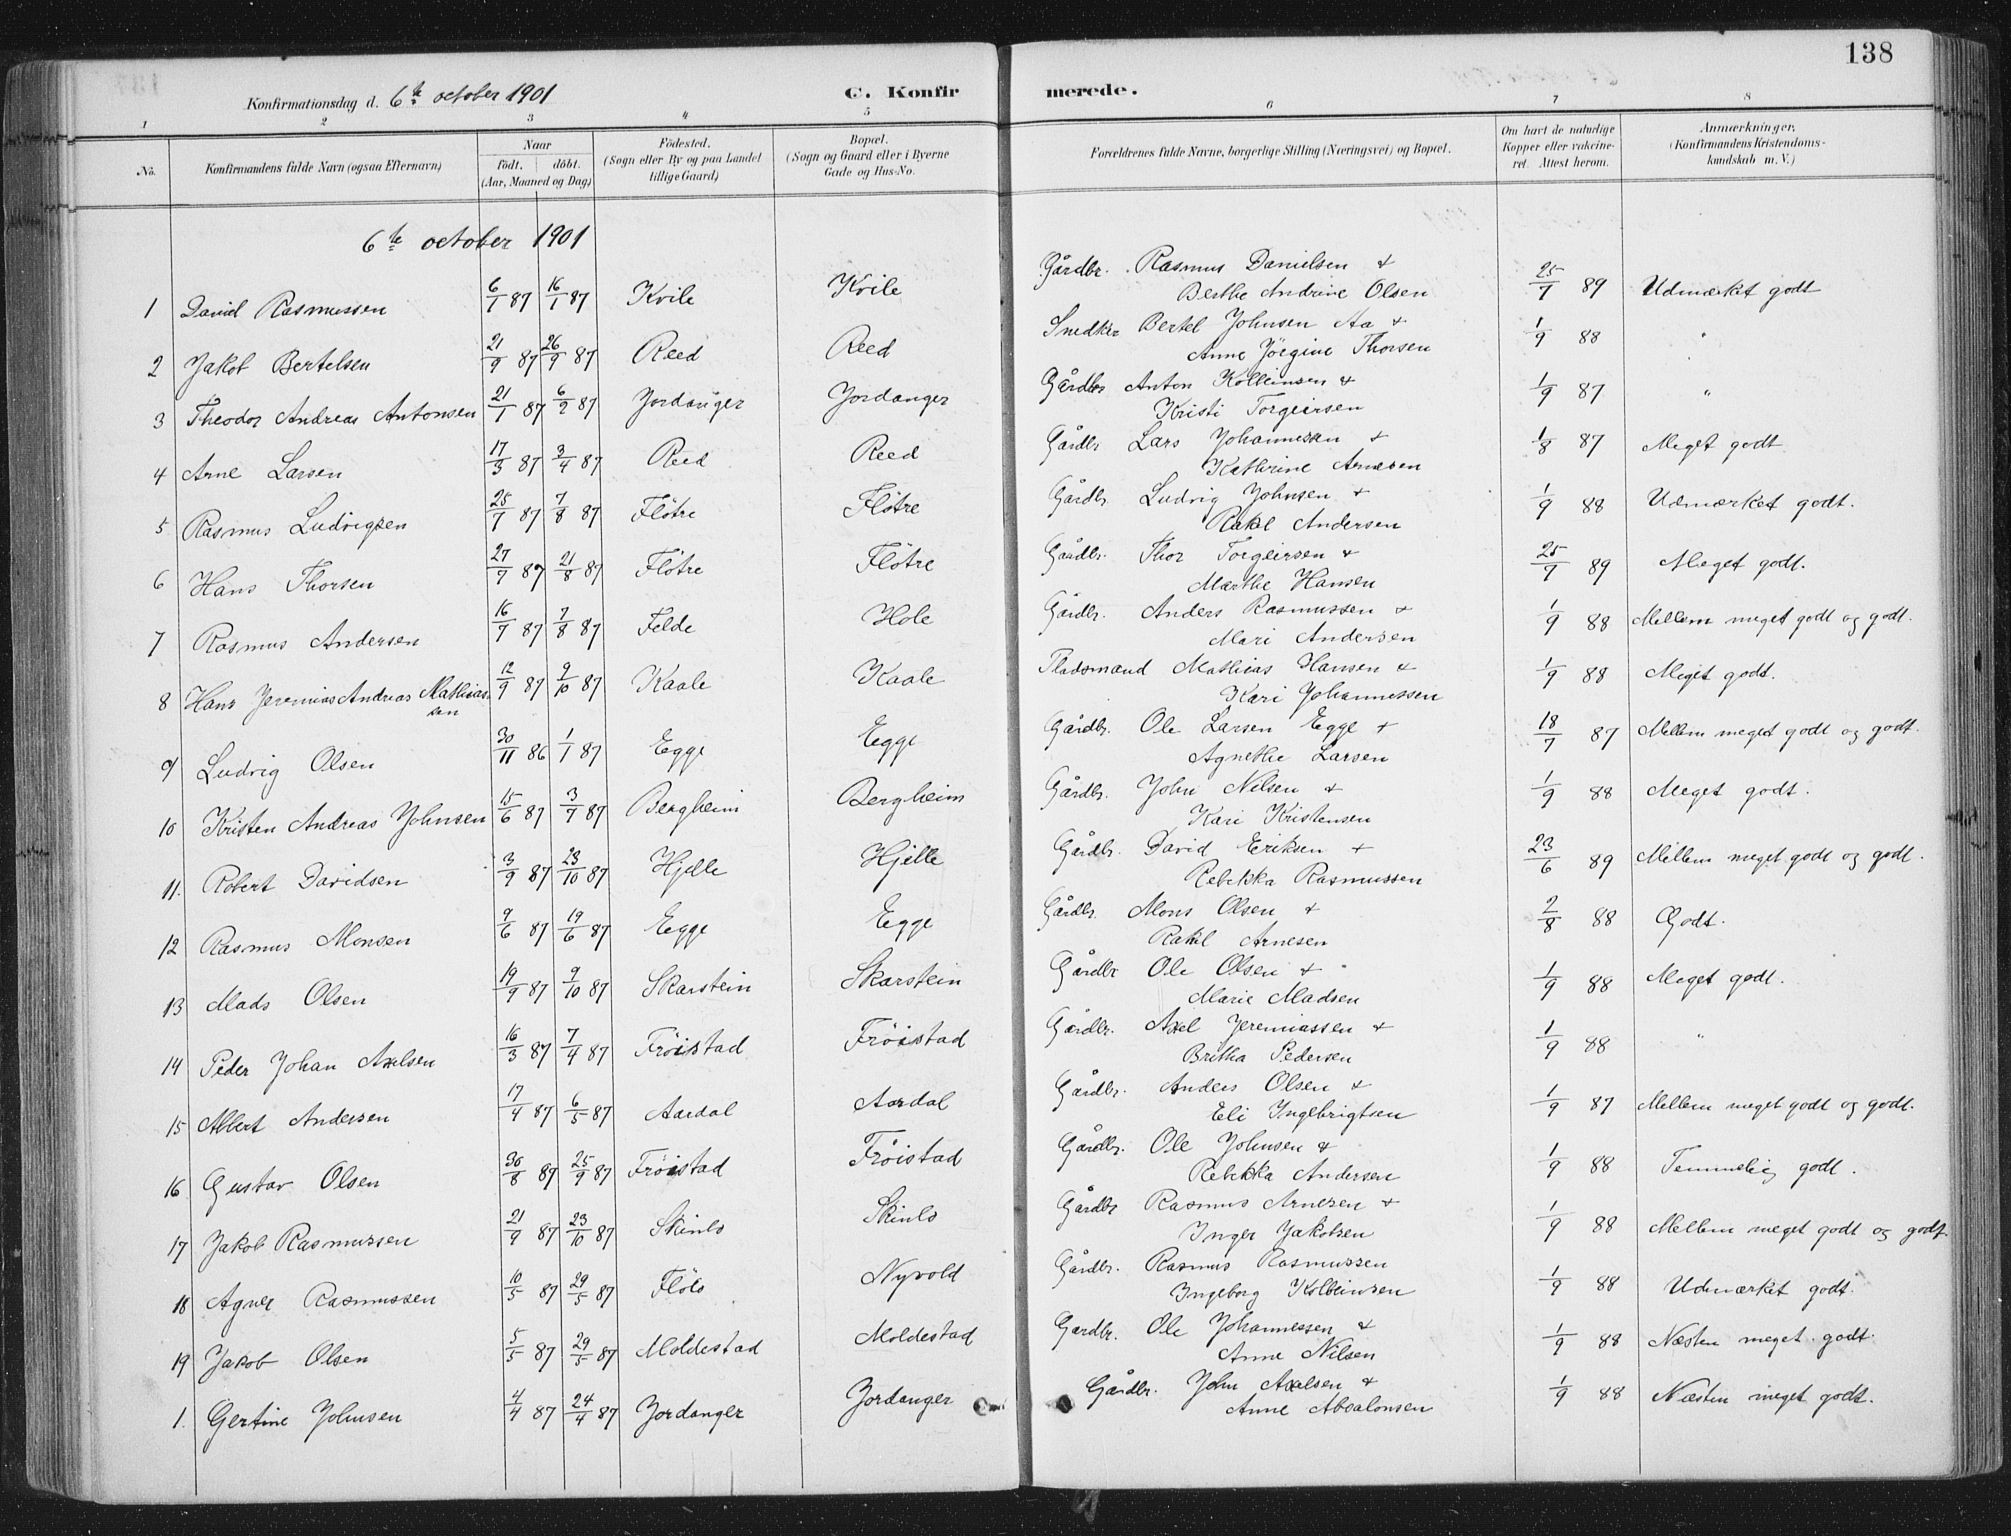 138
Konfirmationsdag d. 6te october 1901 C. Konfirmerede.
1 2 3 4 5 6 7 8
No. Konfirmandens fulde Navn (ogsaa Efternavn) Naar födt. döbt. (Aar, Maaned og Dag) Födested. (Sogn eller By og paa Landet tillige Gaard) Bopæl. (Sogn og Gaard eller i Byerne Gade og Hus-No. Forældrenes fulde Navne, borgerlige Stilling (Næringsvei) og Bopæl. Om havt de naturlige Kopper eller vakcineret. Attest herom. Anmærkninger, (Konfirmandens Kristendomskundskab m. V.)
6te october 1901
1 Daniel Rasmussen 6/1 87 16/1 87 Kvile Kvile Gårdbr. Rasmus Danielsen + 25/7 89 Udmærket godt
Berthe Andrine Olsen
2 Jakob Bertelsen 21/9 87 26/9 87 Reed Reed Snedker Bertel Johnsen Aa + 1/9 88 "
Anne Jörgine Thorsen
3 Theodor Andreas Antonsen 21/1 87 6/2 87 Jordanger Jordanger Gårdbr Anton Kolbeinsen + 1/9 87 "
Kristi Torgeirsen
4 Arne Larsen 17/3 87 3/4 87 Reed Reed Gårdbr Lars Johannessen + 1/8 87 Meget godt
Kathrine Arnesen
5 Rasmus Ludvigsen 25/7 87 7/8 87 Flötre Flötre Gårdbr. Ludvig Johnsen + 1/9 88 Udmærket godt.
Rakel Andersen
6 Hans Thorsen 27/7 87 21/8 87 Flötre Flötre Gårdbr. Thor Torgeirsen + 25/7 89 Meget godt.
Marthe Hansen
7 Rasmus Andersen 16/7 87 7/8 87 Felde Hole Gårdbr. Anders Rasmussen + 1/9 88 Mellem meget godt og godt.
Mari Andersen
8 Hans Jeremias Andreas Mathias- 12/9 87 9/10 87 Kaale Kaale Pladsmand Mathias Hansen + 1/9 88 Meget godt.
sen Kari Johannessen
9 Ludvig Olsen 30/11 86 1/1 87 Egge Egge Gårdbr. Ole Larsen Egge + 18/7 87 Mellem meget godt og godt.
Agnethe Larsen
10 Kristen Andreas Johnsen 15/6 87 3/7 87 Bergheim Bergheim Gårdbr. John Nilsen + 1/9 88 Meget godt.
Kari Kristensen
11. Robert Davidsen 3/9 87 23/10 87 Hjelle Hjelle Gårdbr. David Eriksen + 23/6 89 Mellem meget godt og godt.
Rebekka Rasmussen
12 Rasmus Monsen 9/6 87 19/6 87 Egge Egge Gårdbr. Mons Olsen + 2/8 88 Godt.
Rakel Arnesen
13 Mads Olsen 19/9 87 9/10 87 Skarstein Skarstein Gårdbr Ole Olsen + 1/9 88 Meget godt.
Marie Madsen
14 Peder Johan Axelsen 16/3 87 7/4 87 Fröistad Fröistad Gårdbr. Axel Jeremiassen + 1/9 88 "
Britha Pedersen
15 Albert Andersen 17/4 87 6/5 87 Aardal Aardal Gårdbr. Anders Olsen + 1/9 87 Mellem meget godt og godt.
Eli Ingebrigtsen
16 Gustav Olsen 30/8 87 25/9 87 Fröistad Fröistad Gårdbr. Ole Johnsen + 1/9 88 Temmelig godt.
Rebekka Andersen
17 Jakob Rasmussen 21/9 87 23/10 87 Skinlo Skinlo Gårdbr Rasmus Arnesen + 1/9 88 Mellem meget godt og godt
Inger Jakobsen
18 Agner Rasmussen 10/5 87 29/5 87 Flölo Nyvold Gårdbr. Rasmus Rasmussen 1/9 88 Udmærket godt.
Ingeborg Kolbeinsen
19 Jakob Olsen 5/5 87 29/5 87 Moldestad Moldestad Gardbr. Ole Johannessen + 1/9 88 Næsten meget godt.
Anne Nilsen
1. Gertine Johnsen 4/4 87 24/4 87 Jordanger Jordanger Gårdbr. John Axelsen + 1/9 88 Næsten meget godt.
Anne Absalonsen